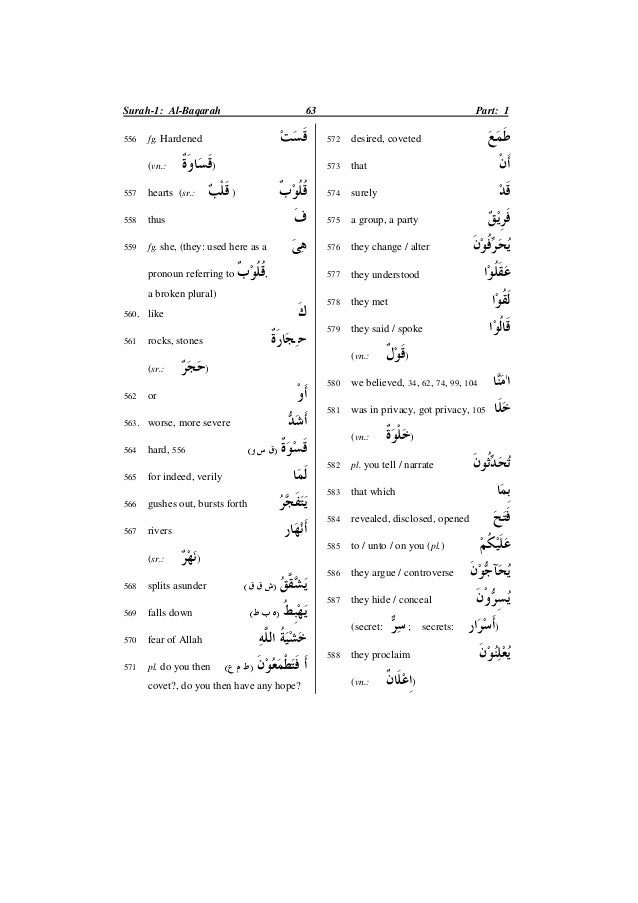 Surah-1: Al-Baqarah 63 Part: 1
556 fg. Hardened قَسَتْ
(vn.: قَسَاوَةٌ)
557 hearts (sr.: قَلْبٌ ) قُلُوْبٌ
558 thus فَ
559 fg. she, (they: used here as a هِيَ
pronoun referring to قُلُوْبٌ,
a broken plural)
560. like كَ
561 rocks, stones حِجَارَةٌ
(sr.: حَجَرٌ)
562 or أَوْ
563. worse, more severe أَشَدُّ
564 hard, 556 (ق س و) قَسْوَةٌ
565 for indeed, verily لَمَا
566 gushes out, bursts forth يَتَفَجَّرُ
567 rivers أَنْهَار
(sr.: نَهْرٌ)
568 splits asunder (ش ق ق) يَشَّقَّقُ
569 falls down (ه ب ط) يَهْبِطُ
570 fear of Allah خَشْيَةُ اللَّهِ
571 pl. do you then (ط م ع) أَ فَتَطْمَعُوْنَ
covet?, do you then have any hope?
572 desired, coveted طَمَعَ
573 that أَنْ
574 surely قَدْ
575 a group, a party فَرِيْقٌ
576 they change / alter يُحَرِّفُوْنَ
577 they understood عَقَلُوْا
578 they met لَقُوْا
579 they said / spoke قَالُوْا
(vn.: قَوْلٌ)
580 we believed, 34, 62, 74, 99, 104 اٰمَنَّا
581 was in privacy, got privacy, 105 خَلَا
(vn.: خَلْوَةٌ)
582 pl. you tell / narrate تُحَدِّثُوْنَ
583 that which بِمَا
584 revealed, disclosed, opened فَتَحَ
585 to / unto / on you (pl.) عَلَيْكُمْ
586 they argue / controverse يُحَآجُّوْنَ
587 they hide / conceal يُسِرُّوْنَ
(secret: سِرٌّ ; secrets: أَسْرَار)
588 they proclaim يُعْلِنُوْنَ
(vn.: اِعْلَانٌ)